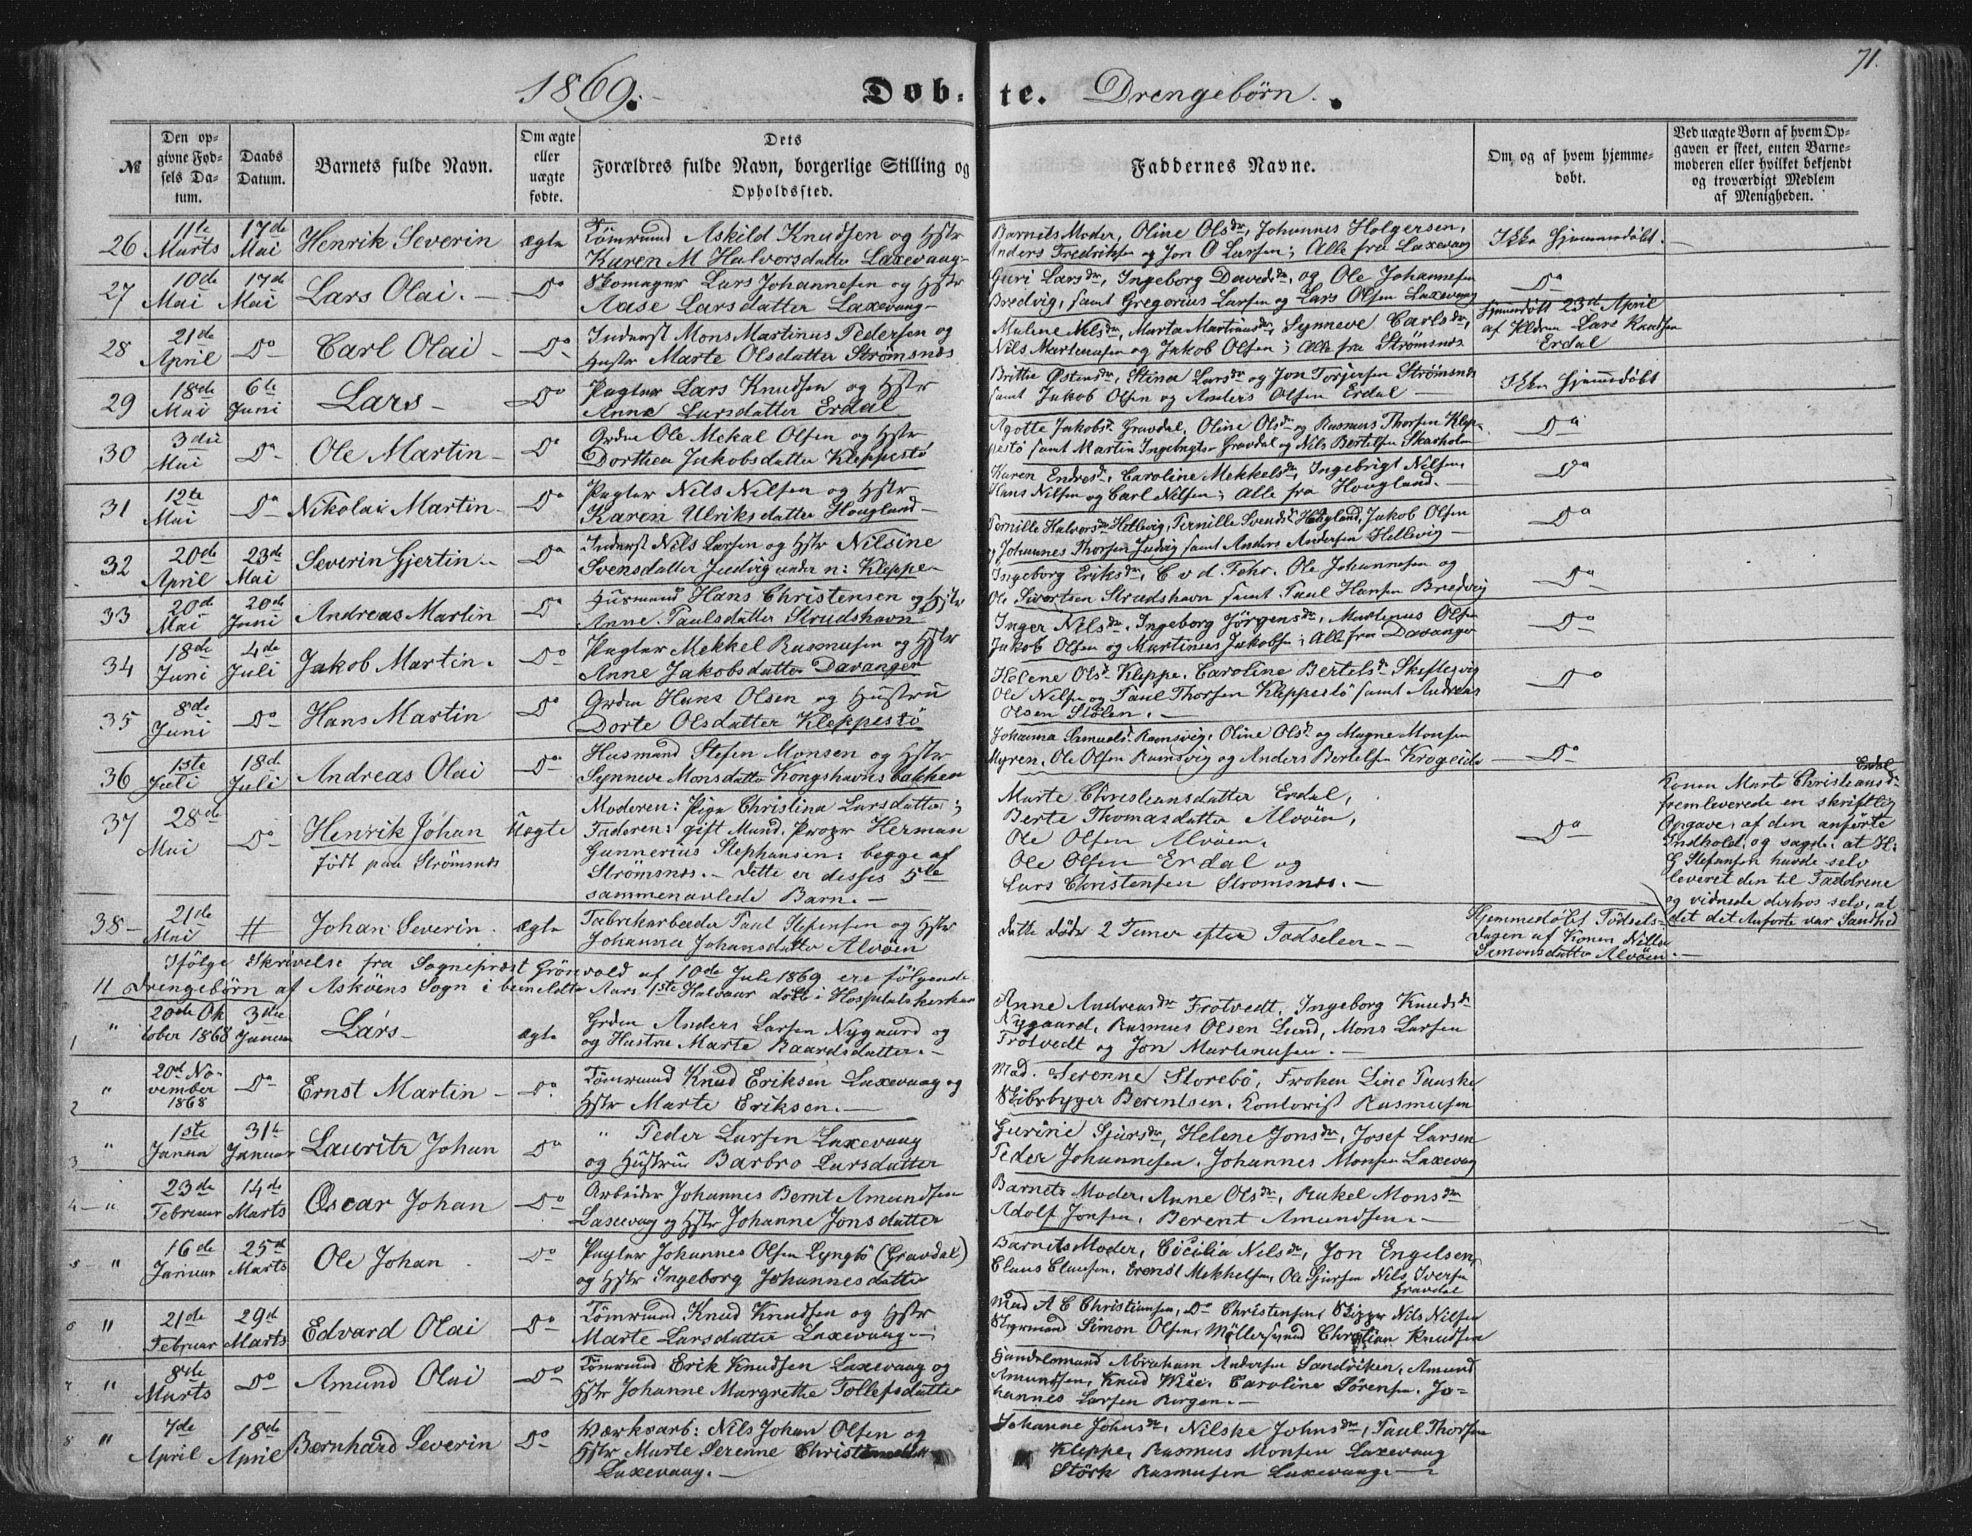 71.
1869. Døb-te. Drengebørn.
№
Den opgivne Fødsels Datum.
Daabs Datum.
Barnets fulde Navn.
Om ægte eller uægte fødte.
Dets Forældres fulde Navn, borgerlige Stilling og Opholdssted.
Faddernes Navne.
Om og af hvem hjemmedøbt.
Ved uægte Børn af hvem Opgaven er skeet, enten Barnemoderen eller hvilket bekjendt og troværdigt Medlem af Menigheden.
26 11te Marts 17de Mai Henrik Severin ægte Tømrmnd Askild Knudsen og Hstr
Karen M Halvorsdatter Laxevaag
Barnets Moder, Oline Olsdr, Johannes Holgersen,
Anders Fredriksen og Jon O Larsen; Alle fra Laxevaag
Ikke hjemmedøbt.
27 10de Mai 17de Mai Lars Olai. Do Skomager Lars Johannesen og Hstr
Aase Larsdatter Laxevaag
Guri Larsdr, Ingeborg Davidsdr, og Ole Johannesen
Bredvig, samt Gregorius Larsen og Lars Olsen Laxevaag
Do
28 21de April Do Carl Olai Do Inderst Mons Martinus Pedersen og
Hustr Marte Olsdatter Strømsnes
Malene Nilsdr, Marta Martinusdr, Synneve Carlsdr,
Nils Martinusen og Jakob Olsen; Alle fra Strømsnes
Hjemmedøbt 23de April
af Kldren Lars Knudsen
Erdal
29 18de Mai 6te Juni Lars Do Pagter Lars Knudsen og Hstr
Anne Larsdatter Erdal
Brithe Østensdr, Stina Larsdr og Jon Torjersen Strømsnes
samt Jakob Olsen og Anders Olsen Erdal
Ikke hjemmedøbt
30 3die Mai Do Ole Martin Do Grdm Ole Mekal Olsen og Hstr
Dorthea Jakobsdatter Kleppestø
Agotte Jakobsd Gravdal, Oline Olsdr og Rasmus Thorsen Klep-
pestø samt Martin Ingebrigts. Gravdal og Nils Bertelsen Skarholm
Do
31 12te Mai Do Nikolai Martin Do Pagter Nils Nilsen og Hstr
Karen Ulriksdatter Hougland
Karen Endresd, Caroline Mekkelsdr, Ingebrigt Nilsen,
Hans Nilsen og Carl Nilsen; Alle fra Hougland.
Do
32 20de April 23de Mai Severin Gjertin Do Inderst Nils Larsen og Hstr Nilsine
Svensdatter Judvig under n: Kleppe
Pernille Halvorsdr Hellevig, Pernille Svendsd Hougland, Jakob Olsen
og Johannes Thorsen Judvig samt Anders Andersen Hellevig
Do
33 20d Mai 20de Juni Andreas Martin Do Husmand Hans Christensen og Hstr
Anne Paulsdatter Strudshavn
Ingeborg Eriksdr, C v d Fehr. Ole Johannesen og
Ole Sivertsen Strudshavn samt Paul Hansen Bredvig
Do
34 18de Juni 4de Juli Jakob Martin. Do Pagter Mekkel Rasmusen og Hstr
Anne Jakobsdatter Davanger
Inger Nilsdr, Ingeborg Jörgensdr, Martenus Olsen
Jakob Olsen og Martinus Jakobsen; Alle fra Davanger
Do
35 8de Juni Do Hans Martin Do Grdm Hans Olsen og Hustru
Dorte Olsdatter Kleppestø
Helene Olsd Kleppe, Caroline Bertelsd Skiftesvig
Ole Nilsen og Paul Thorsen Kleppestø samt Andreas
Olsen Stølen.
Do
36 1ste Juli 18d Juli Andreas Olai Do Husmand Stefen Monsen og Hstr
Synneve Monsdatter Kongshavnsbakken
Johanna Samuelsd Ramsvig, Oline Olsd og Magne Monsen
Myren, Ole Olsen Ramsvig og Anders Bertelsen Krogeide
Do
37 28de Mai Do Henrik Johan
født paa Strømsnes
Uægte Moderen: Pige Christina Larsdatter;
Faderen: gift Mand, Herman
Gunnerius Stephansen: begge af
Strømsnes. Dette er disses 5te
sammenavlede Barn.
Marte Christiansdatter Erdal,
Berte Thomasdatter Alvøen,
Ole Olsen Alvøen.
Ole Olsen Erdal og
Lars Christensen Strømsnes.
Do
Erdal
Konen Marte Christiansd
fremleverede en skriftlig
Opgave, af den anførte
Indhold, og sagde: at H:
G Stefansen havde selv
leveret den til Faddrene
og vidnede derhos selv, at
det det Anførte var Sandhed
38 21de Mai # Johan Severin. ægte Fabrikarbeider Paul Stefensen og Hstr
Johanna Johansdatter Alvøen
dette døde 2 Timer efter Fødselen
Hjemmedøbt Fødsels-
dagen af Konen Nille
Simonsdatter Alvøen.
Ifølge Skrivelse fra Sognepræst Grönvold af 10de Juli 1869 ere følgende
11 Drengebørn af Askøens Sogn i bemeldte Aars 1ste Halvaar døbt i Hospitalskirken
1 " 20de Oktober 1868 3die Januar Lars ægte Grdm Anders Larsen Nygaard og
og Hustru Marte Baardsdatter.
Anne Andreasdr Frotvedt, Ingeborg Knudsdr
Nygaard, Rasmus Olsen Lund, Mons Larsen
Frotvedt og Jon Martinusen.
2 " 20d November 1868 Do Ernst Martin Do. Tømrmnd Knud Eriksen Laxevaag og
Hstr Marte Eriksen.
Mad. Serenne Storebø, Frøken Line Fauske
Skibsbygger Berentsen, Kontorist Rasmusen
3 " 1ste Janua 31te Januar Lauritz Johan Do " Peder Larsen Laxevaag
og Hustru Barbro Larsdatter
Gurine Sjursdr, Helene Jonsdr, Josef Larsen
Peder Johannesen, Johannes Monsen Laxevaag
4 " 23de Februar 14de Marts Oscar Johan Do Arbeider Johannes Bernt Amundsen
Laxevaag og Hstr Johanne Jonsdatter
Barnets Moder, Anne Olsdr, Rakel Monsdr
Adolf Jonsen, Berent Amundsen.
5 " 16de Januar 25de Marts Ole Johan Do Pagter Johannes Olsen Lyngbø (Gravdal)
og Hstr Ingeborg Johannesdatter
Barnets Moder, Cicilia Nilsdr, Jon Engelsen,
Claus Clausen, Erenst Mekhelsen, Ole Sjursen Nils Iversen
Gravdal
6 " 21de Februar 29d Marts Edvard Olai Do Tømrmnd Knud Knudsen og Hstr
Marte Larsdatter Laxevaag
Mad A C Christiansen, Do Christensen, Skipper Nils Nilsen
Styrmand Simon Olsen, Møllersvend Christian Knudsen
7 " 8de Marts Do Amund Olai Do Tømrmnd Erik Knudsen Laxevaag og
Hstr Johanne Margrethe Tollefsdatter
Handelsmand Abraham Andersen Sandviken, Amund
Amundsen, Knud Wise, Caroline Sørensen, Jo-
hannes Larsen Bergen.
8 " 7de April 18de April Bernhard Severin Do Værksarb: Nils Johan Olsen og
Hstr Marte Serenne Christensdatt
Laxevaag.
Johanne Johnsdr, Nilske Johnsdr, Paul Thorsen
Kleppe, Rasmus Monsen Laxevaag
Størk Rasmusen Laxevaag.